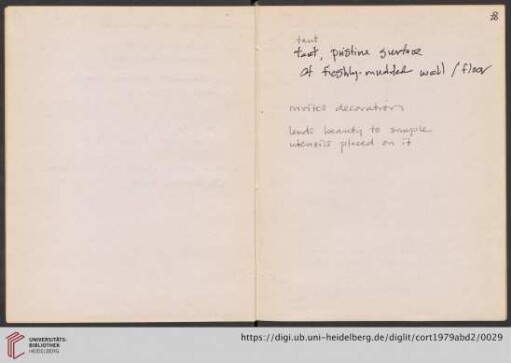 28
taut
taut, pristine surface
of freshly-mudded wall / floor
invites decoration
lends beauty to simple
utensils placed on it
UNIVERSITÄTS-
BIBLIOTHEK
HEIDELBERG
https://digi.ub.uni-heidelberg.de/diglit/cort1979abd2/0029